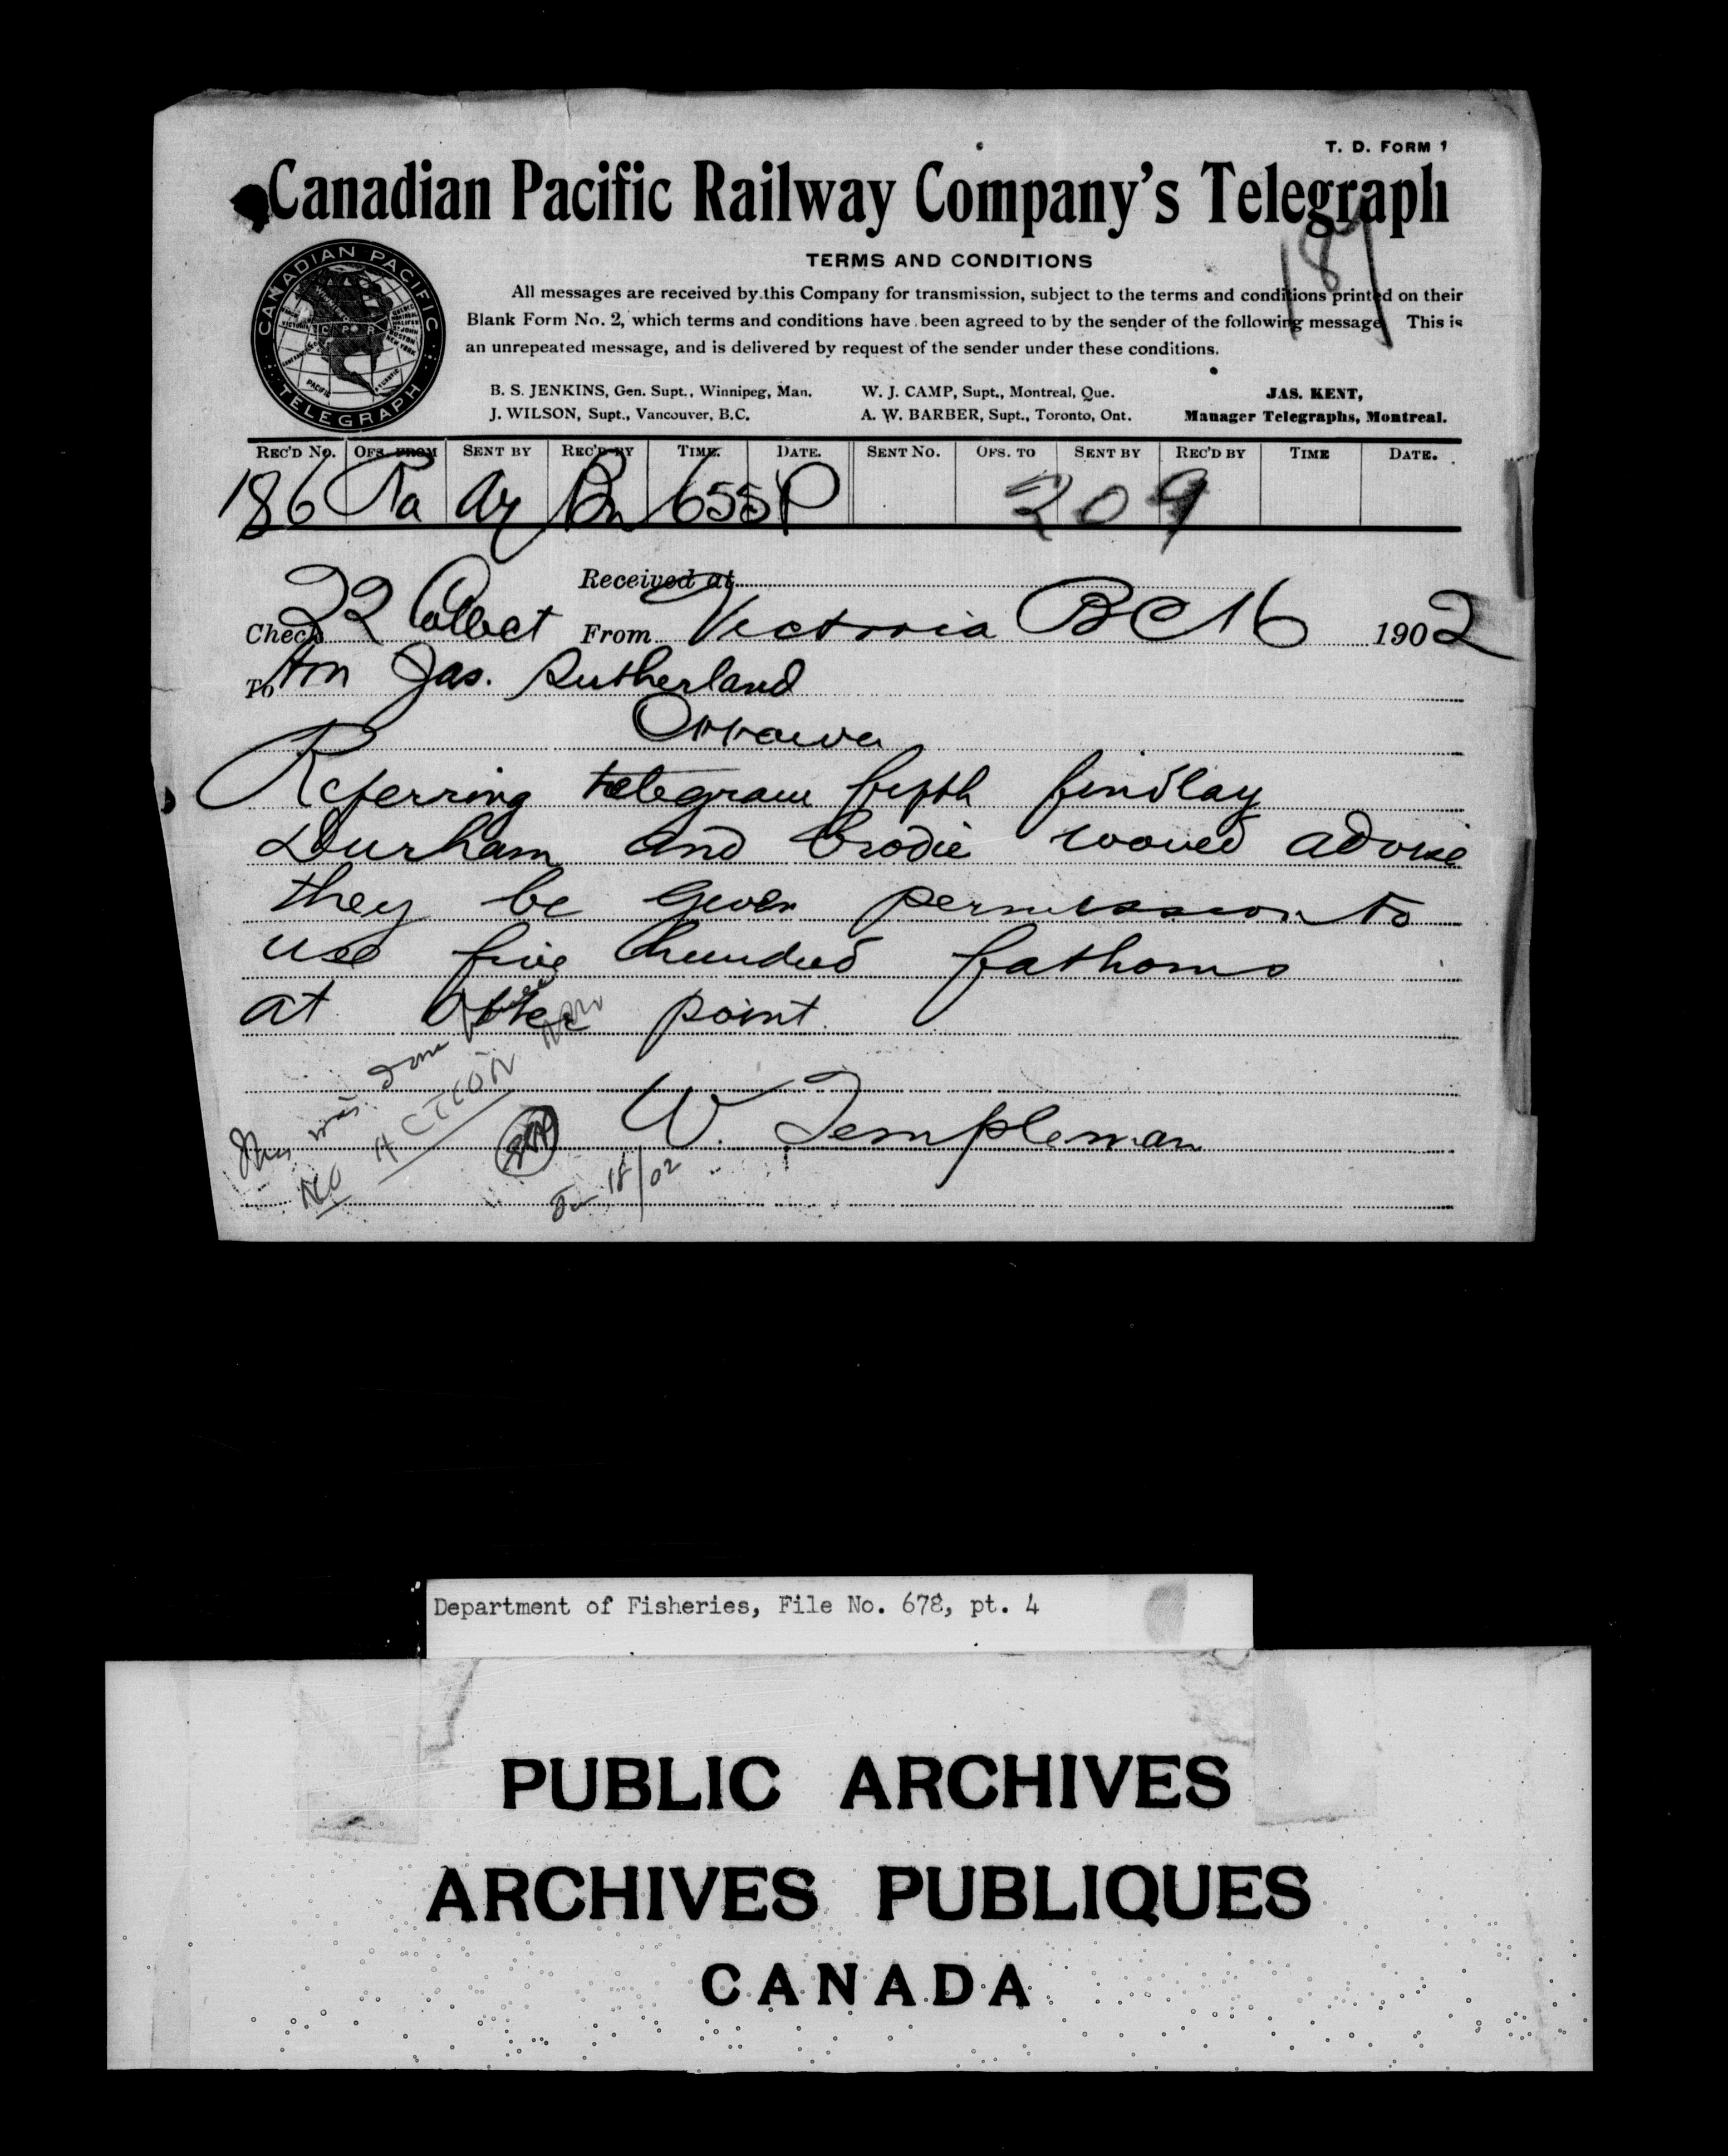 T. D. FORM 1
Canadian Pacific Railway Company's Telegraph
187
TERMS AND CONDITIONS
CANADIAN PACIFIC
TELEGRAPH
All messages are received by this Company for transmission, subject to the terms and conditions printed on their
Blank Form No. 2, which terms and conditions have been agreed to by the sender of the following message. This is
an unrepeated message, and is delivered by request of the sender under these conditions.
B. S. JENKINS, Gen. Supt., Winnipeg, Man. W. J. CAMP, Supt., Montreal, Que. JAS. KENT,
J. WILSON, Supt., Vancouver, B.C. A. W. BARBER, Supt., Toronto, Ont. Manager Telegraphs, Montreal.
REC'D No. OFS. FROM SENT BY REC'D BY TIME. DATE. SENT No. OFS. TO SENT BY REC'D BY TIME DATE.
186 655P 209
Received at
Check 22 Collect From Victoria BC 16 1902
To Hon Jas. Sutherland
Ottawa
Referring telegram fifth findlay
Durham and brodie would advise
they be given permission to
use five hundred fathoms
at Otter point
This was done
NO ACTION now
W. Templeman
18/02
Department of Fisheries, File No. 678, pt. 4
PUBLIC ARCHIVES
ARCHIVES PUBLIQUES
CANADA